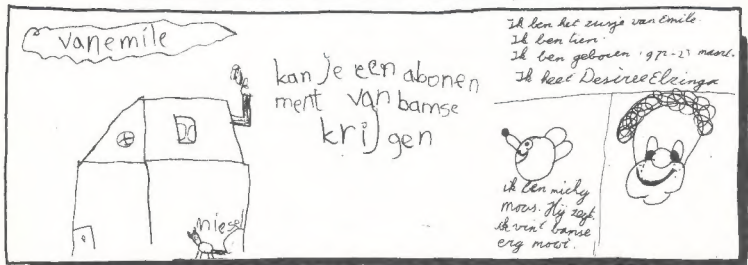 van emile
kan je een abonen
ment van bamse
krijgen
miesel
Ik ben het zusje van Emile.
Ik ben tien.
Ik ben geboren 1972-23 maart.
Ik heet Desiree Elzinga
ik ben micky
mous. Hij zegt.
ik vint bamse
erg mooi.